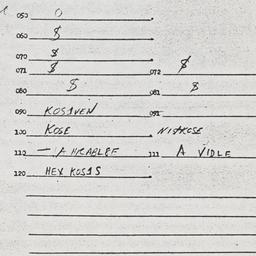 050 0
060 $
070 $
071 $ 072 $
080 $ 081 $
090 KOSOVEN 091
100 KOSE NITKOSE
110 — A 111 A VIDLE
120 HEX KOSIS